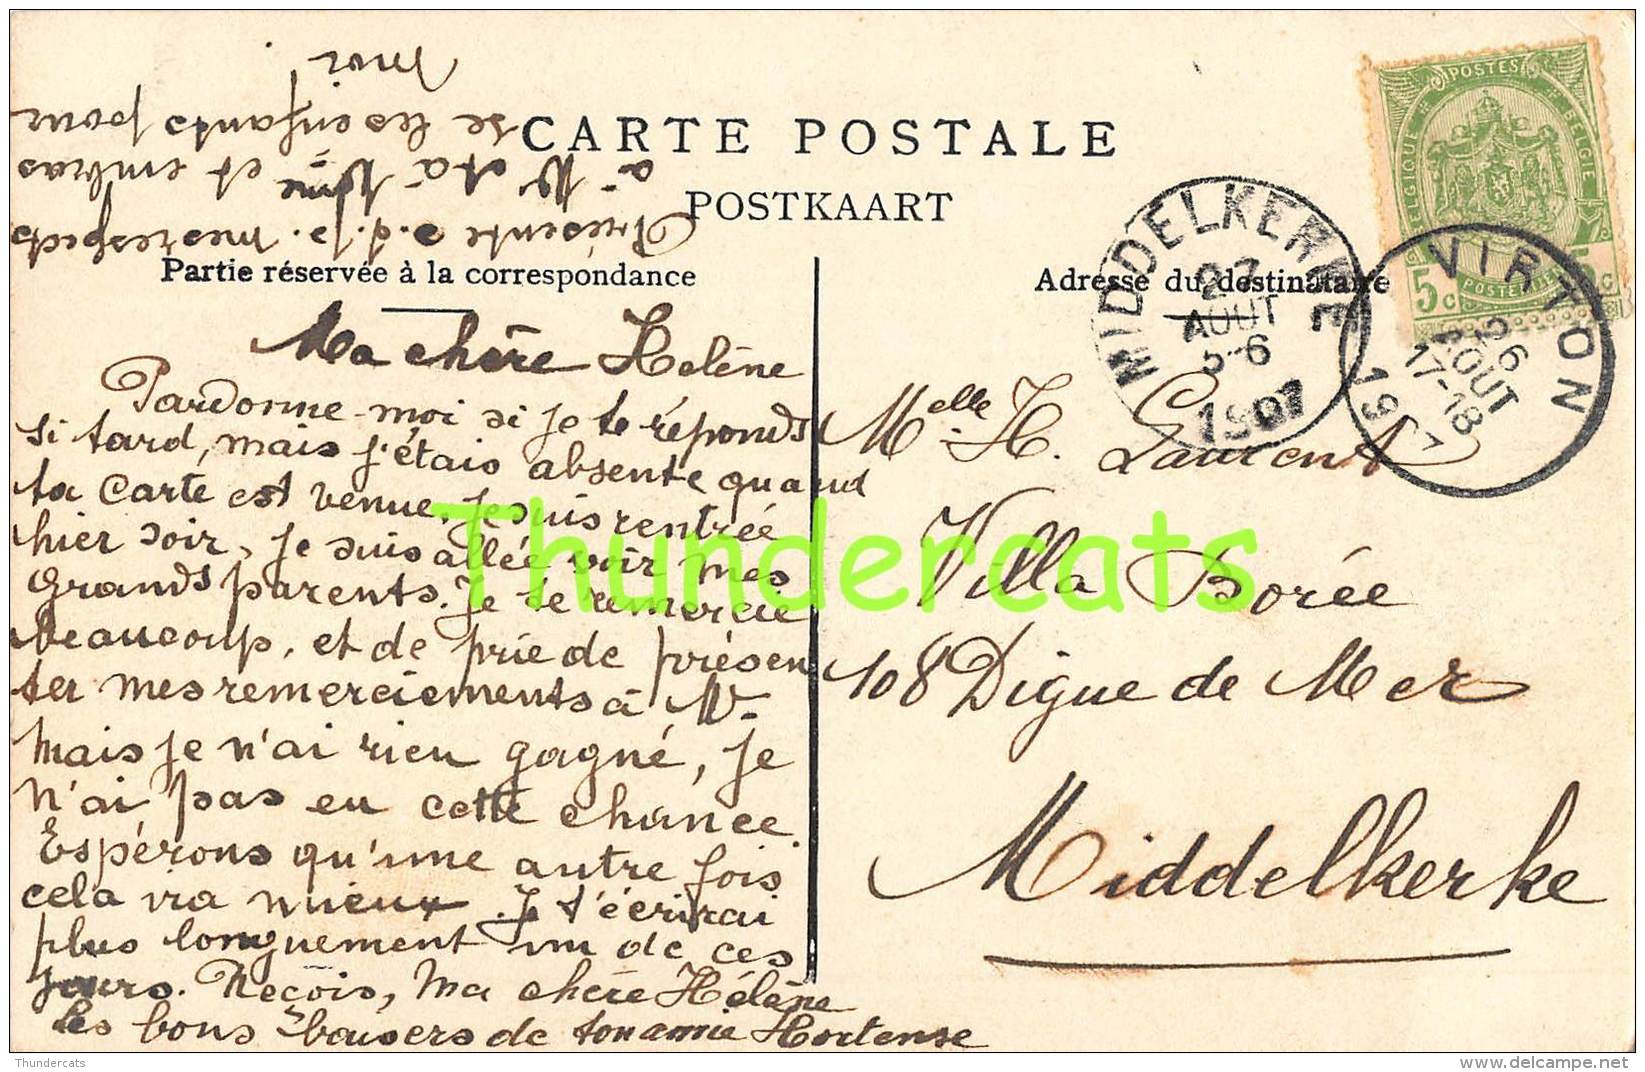 CARTE POSTALE
POSTKAART
Partie réservée à la correspondance
Adresse du destinataire
Ma chère Helène
Pardonne-moi si je te réponds
si tard, mais j'étais absente quand
ta carte est venue. Je suis rentrée
hier soir, je suis allée voir mes
grands parents. Je te remercie
beaucoup, et de prie de présen
ter mes remerciements à Mr.
Mais je n'ai rien gagné, je
n'ai pas eu cette chance.
Espérons qu'une autre fois
cela ira mieux. Je t'écrirai
plus longuement un de ces
jours. Reçois, ma chère Hélène
les bons baisers de ton amie Hortense
Présente s. t. p. mes respects
à Mr et à Mme et embras
se les enfants pour
moi!
Melle H. Laurent
Villa Borée
108 Digue de Mer
Middelkerke
POSTES
BELGIQUE
BELGIE
5c
POSTERIJEN
5c
MIDDELKERKE
27
AOUT
5-6
1907
VIRTON
26
AOUT
17-18
1907
Thundercats
Thundercats
www.delcampe.net